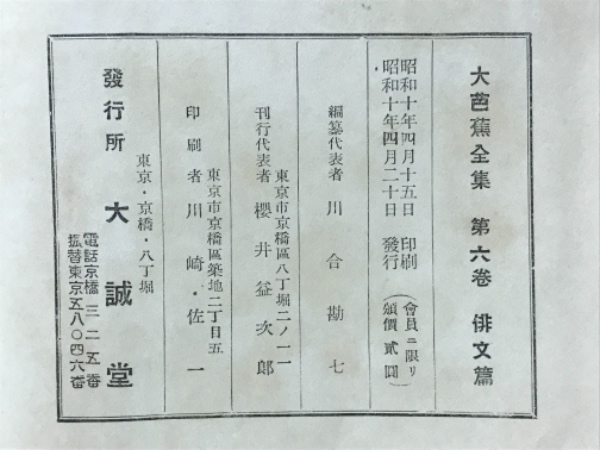 大芭蕉全集 第六卷 俳文篇
昭和十年四月十五日 印刷
昭和十年四月二十日 發行
(會員ニ限リ
頒價貳圓)
編纂代表者 川合勘七
東京市京橋區八丁堀二ノ一一
刊行代表者 櫻井益次郎
東京市京橋區築地二丁目五
印刷者 川崎・佐一
東京・京橋・八丁堀
發行所 大誠堂
電話京橋三二五番
振替東京五八〇四六番